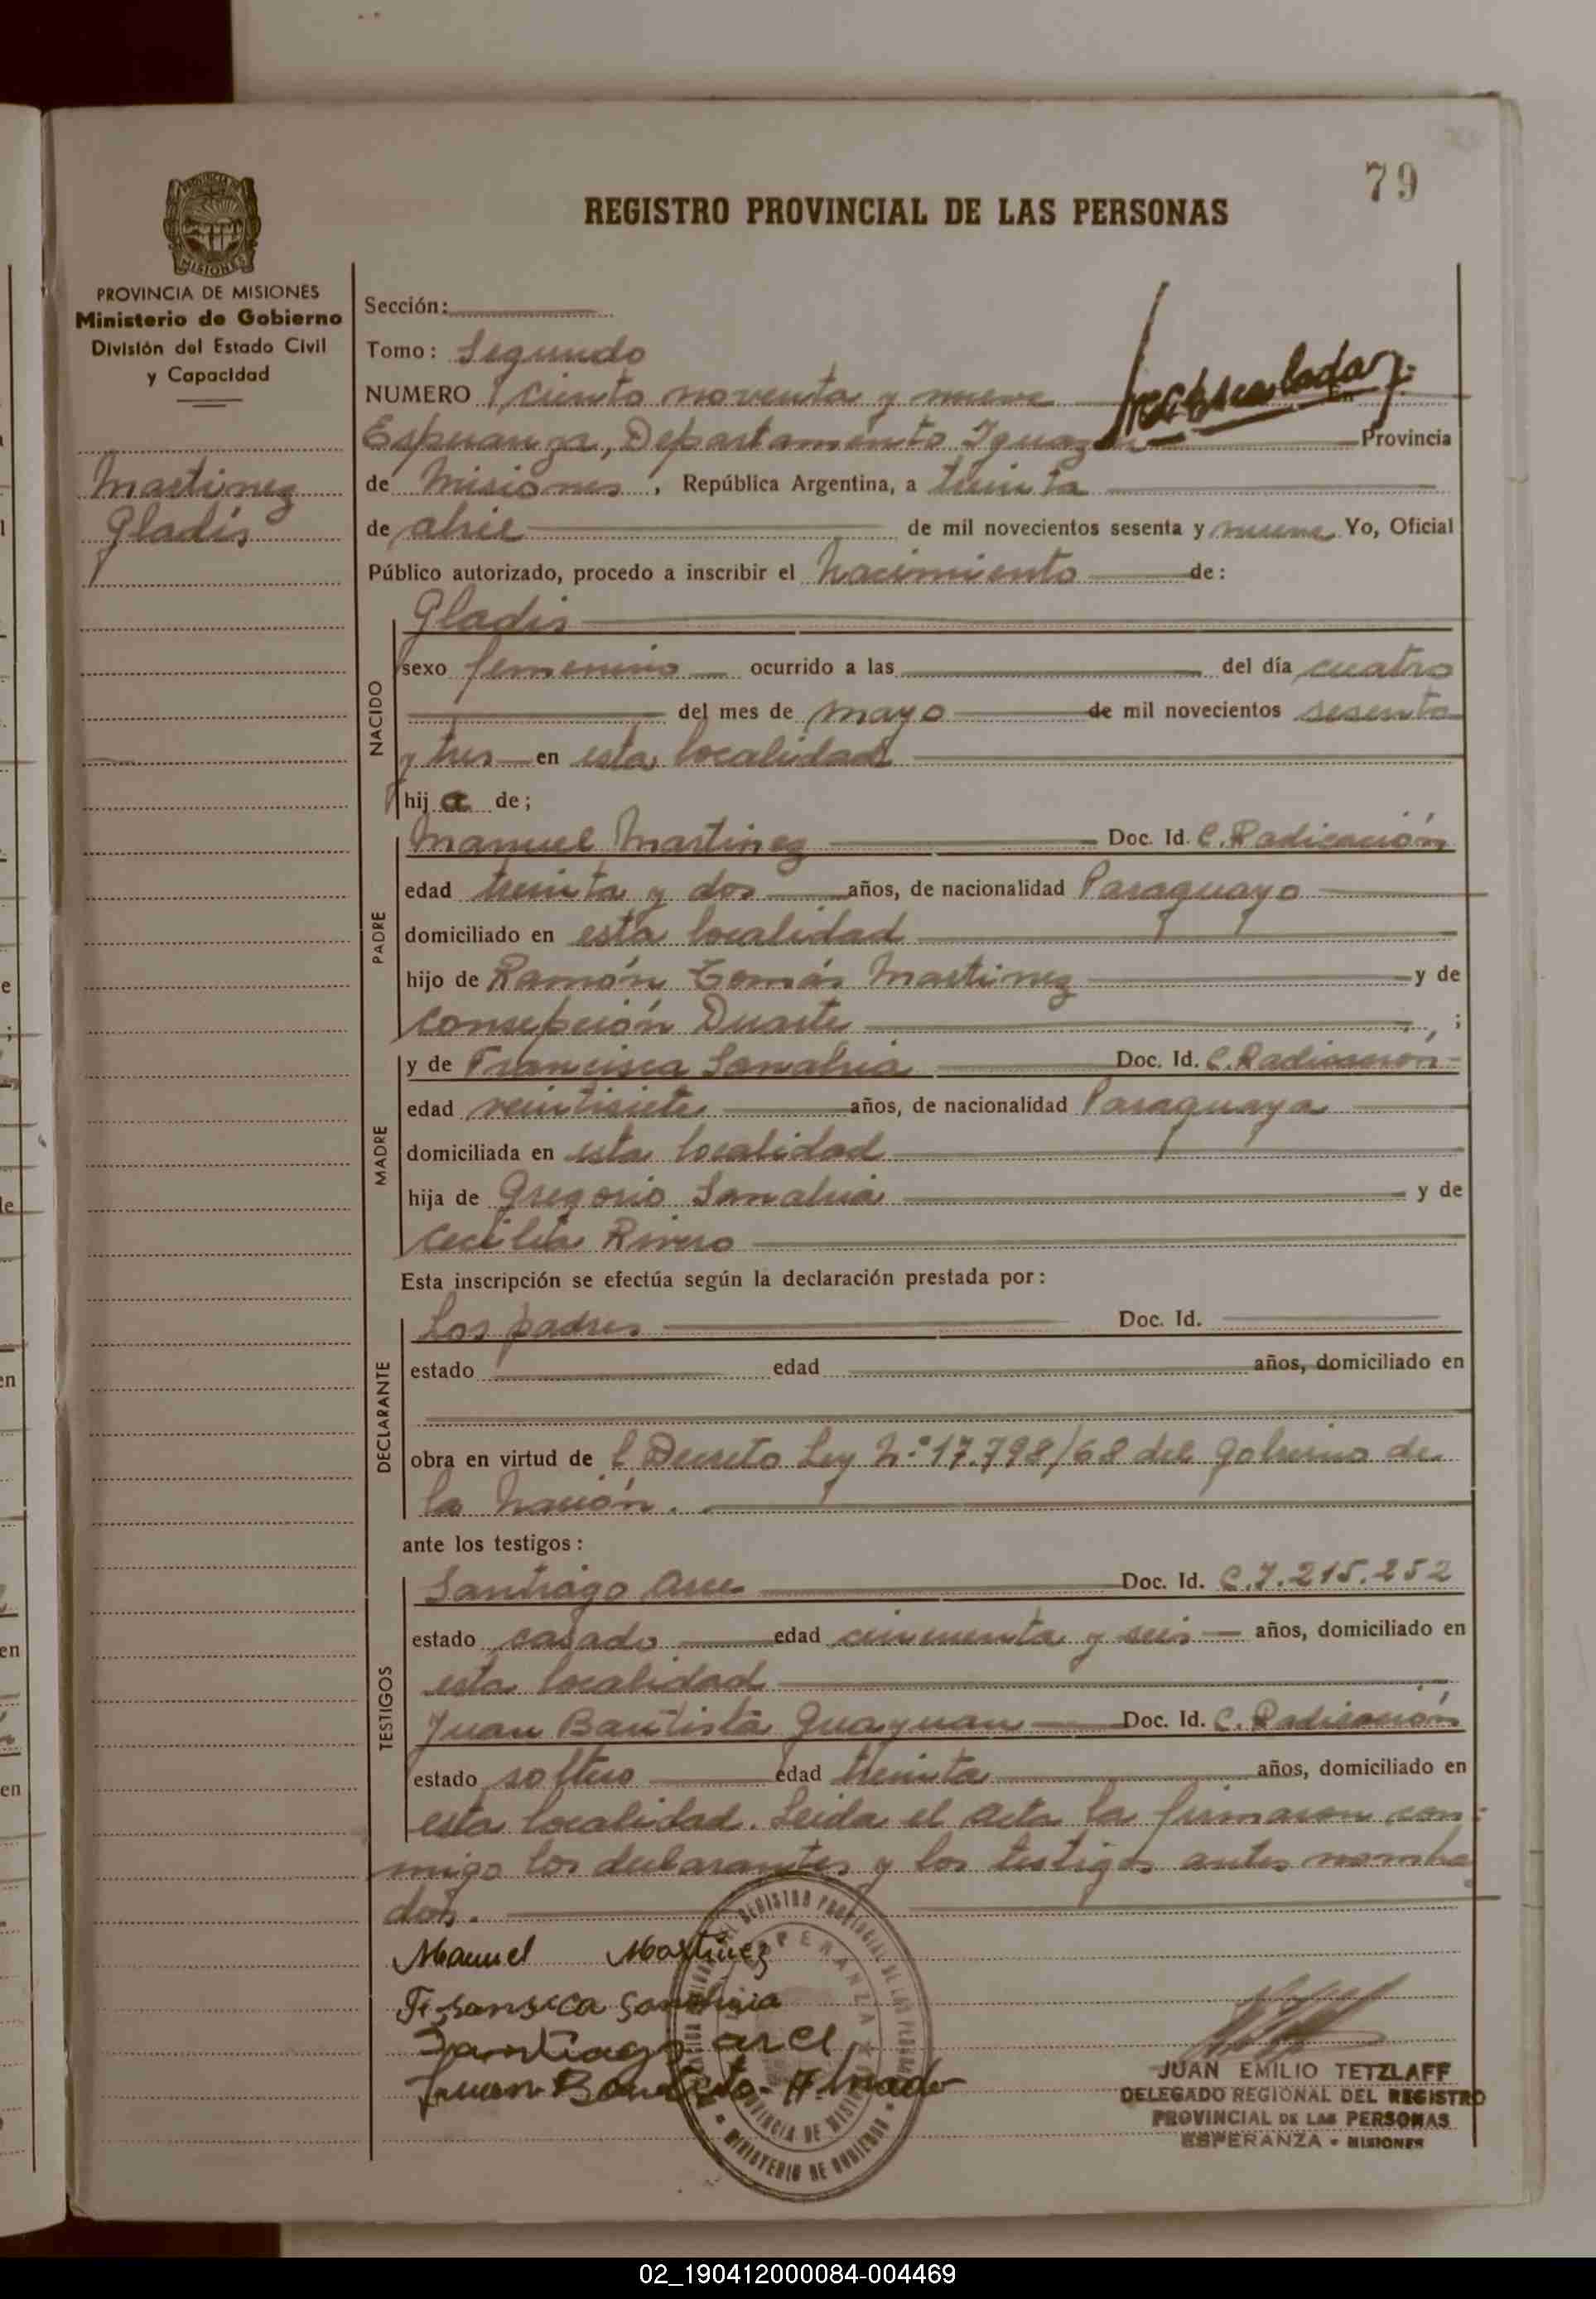 79
REGISTRO PROVINCIAL DE LAS PERSONAS
PROVINCIA DE MISIONES
Ministerio de Gobierno
División del Estado Civil
y Capacidad
Martinez
Gladis
Sección:
Tomo: Segundo
NUMERO ciento noventa y nueve En
Esperanza, Departamento Iguazú Provincia
de Misiones, República Argentina, a treinta
de abril de mil novecientos sesenta y nueve Yo, Oficial
Público autorizado, procedo a inscribir el nacimiento de:
Gladis
NACIDO
sexo femenino ocurrido a las del día cuatro
del mes de mayo de mil novecientos sesenta
y tres en esta localidad
hija de;
PADRE
Manuel Martinez Doc. Id. C. Radicación
edad treinta y dos años, de nacionalidad Paraguayo
domiciliado en esta localidad
hijo de Ramón Tomás Martinez y de
Consepción Duarte ;
MADRE
y de Francisca Sanabria Doc. Id. C. Radicación
edad veintisiete años, de nacionalidad Paraguaya
domiciliada en esta localidad
hija de Gregorio Sanabria y de
Cecilia Rivero
Esta inscripción se efectúa según la declaración prestada por:
DECLARANTE
Los padres Doc. Id.
estado edad años, domiciliado en
obra en virtud de l Decreto Ley N.º 17.798/68 del Gobierno de
la Nación.
ante los testigos:
TESTIGOS
Santiago Arce Doc. Id. C.I. 215.252
estado casado edad cincuenta y seis años, domiciliado en
esta localidad
Juan Bautista Doc. Id. C. Radicación
estado soltero edad treinta años, domiciliado en
esta localidad. Leida el acta la firmaron con-
migo los declarantes y los testigos antes nombra
dos.
Manuel Martinez
Fransisca Sanabria
Santiago arce
Juan
REGISTRO PROVINCIAL DE LAS PERSONAS
ESPERANZA
PROVINCIA DE MISIONES
MINISTERIO DE GOBIERNO
JUAN EMILIO TETZLAFF
DELEGADO REGIONAL DEL REGISTRO
PROVINCIAL DE LAS PERSONAS
ESPERANZA - MISIONES
02_190412000084-004469